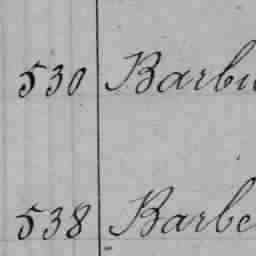 530 Barbi
538 Barbe